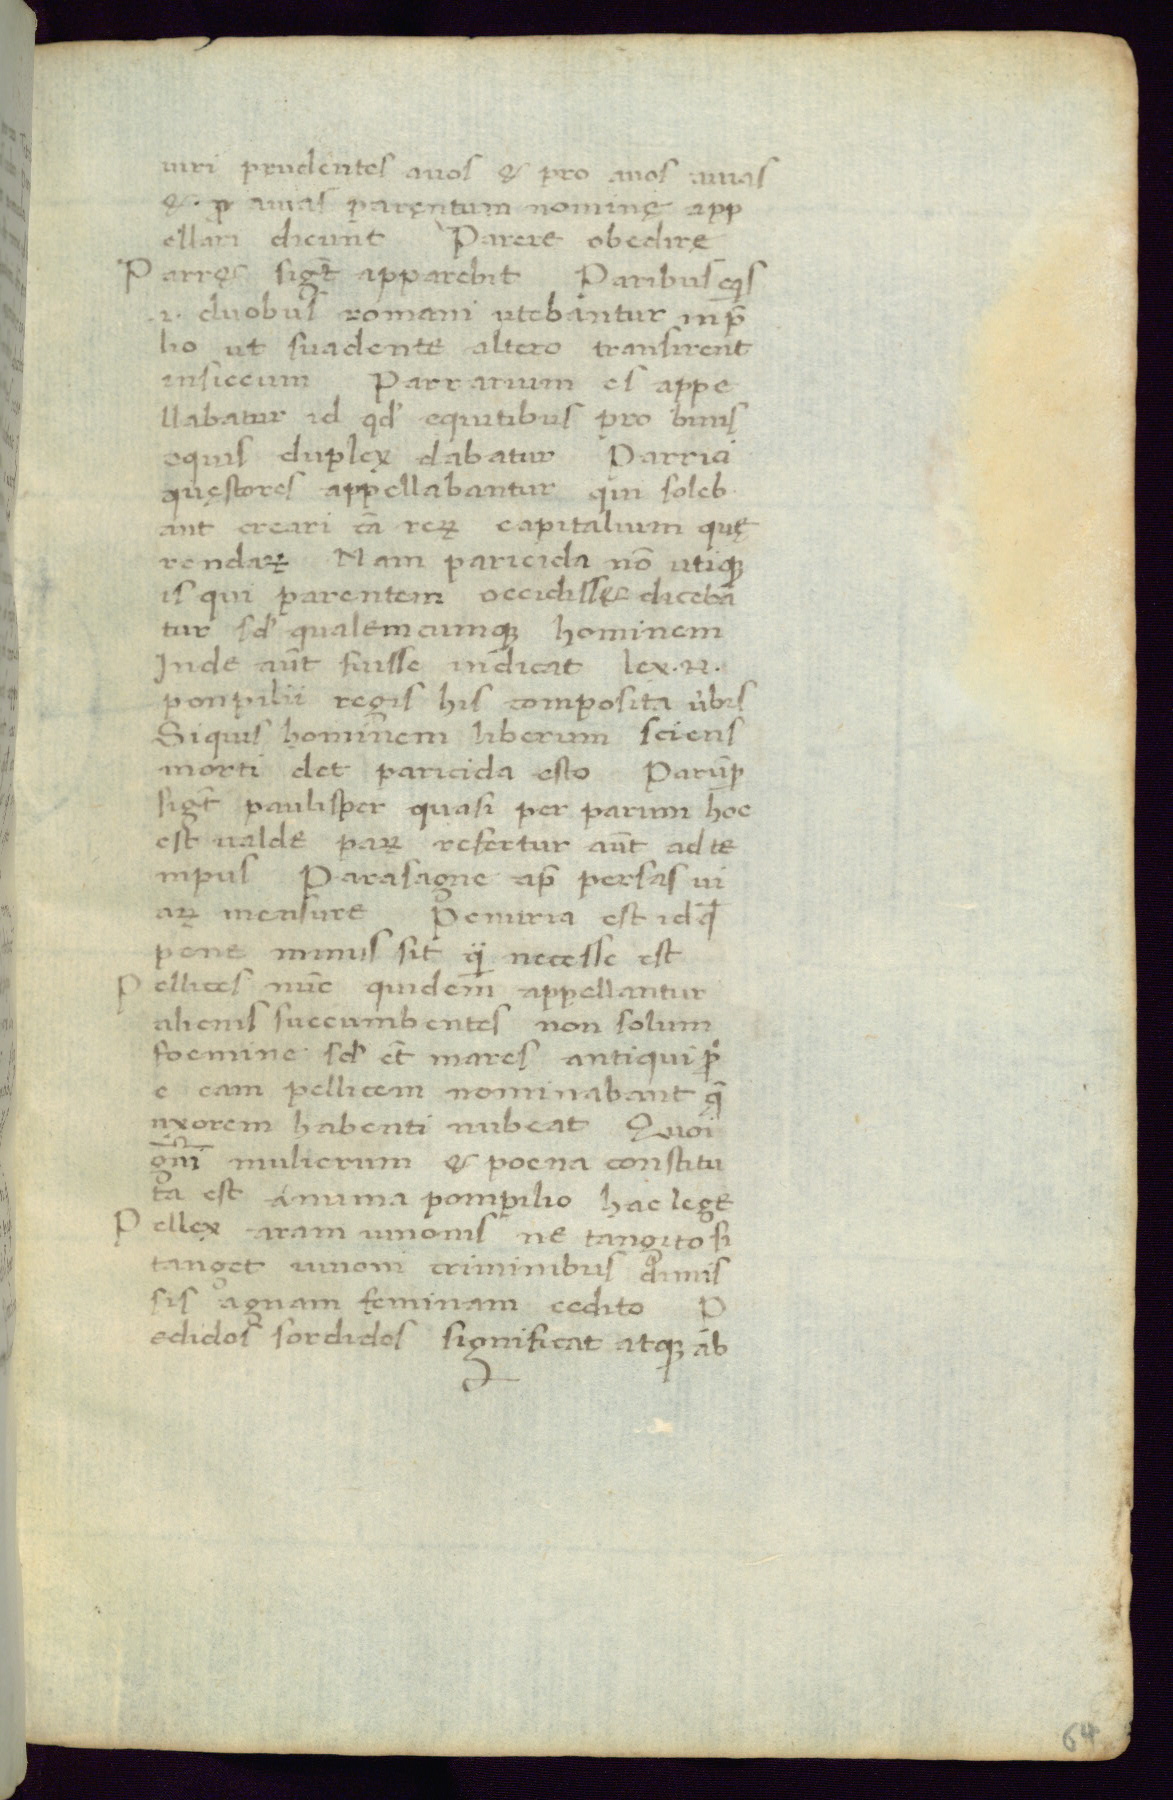 uiri prudentes auos & pro auos auias
& ꝓ auias parentum nominę app
ellari dicunt Parere obedirę
Parręt sigt̄ apparebit Paribus eq̄s
.i. duobus romani utebantur in p̄
lio ut suadente altero transirent
insiccum Parrarium es appe
llabatur id qđ equitibus pro binis
equis duplex dabatur Parrici
quęstores appellabantur qui soleb
ant creari cā reꝝ capitalium quę
rendaꝝ Nam paricida nō utiqꝫ
is qui parentem occidissęt dicebā
tur sđ qualemcumqꝫ hominem
Inde aūt fuisse indicat lex .n.
ponpilii regis his composita u̇bis
Siquis hominem liberum sciens
morti det paricida esto Parūꝑ
sigt̄ paulisper quasi per parum hoc
est ualde paꝝ refertur aūt ad te
mpus Parasagne ap̄ persas ui
aꝝ mensure Penuria est id qđ
pene minus sit q̄ necesse est
Pellices nūc quidem appellantur
alienis succumbentes non solum
foemine sđ et̄ mares antiqui p̊
e eam pellicem nominabant q̄
uxorem habenti nubeat Quoi
gn̄i mulierum & poena constitu
ta est a numa pompilio hac lege
Pellex aram iunonis ne tangito si
tanget iunoni criminibus dimis
sis agnam feminam cedito P
edidos sordidos significat atqꝫ ab
64